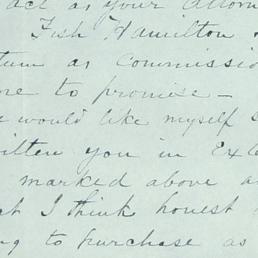 act as your Attorn
Fish Hamilton &
tum as Commissio
me to promise –
would like myself s
itten you in Exte
marked above a
t I think honest
ng to purchase as